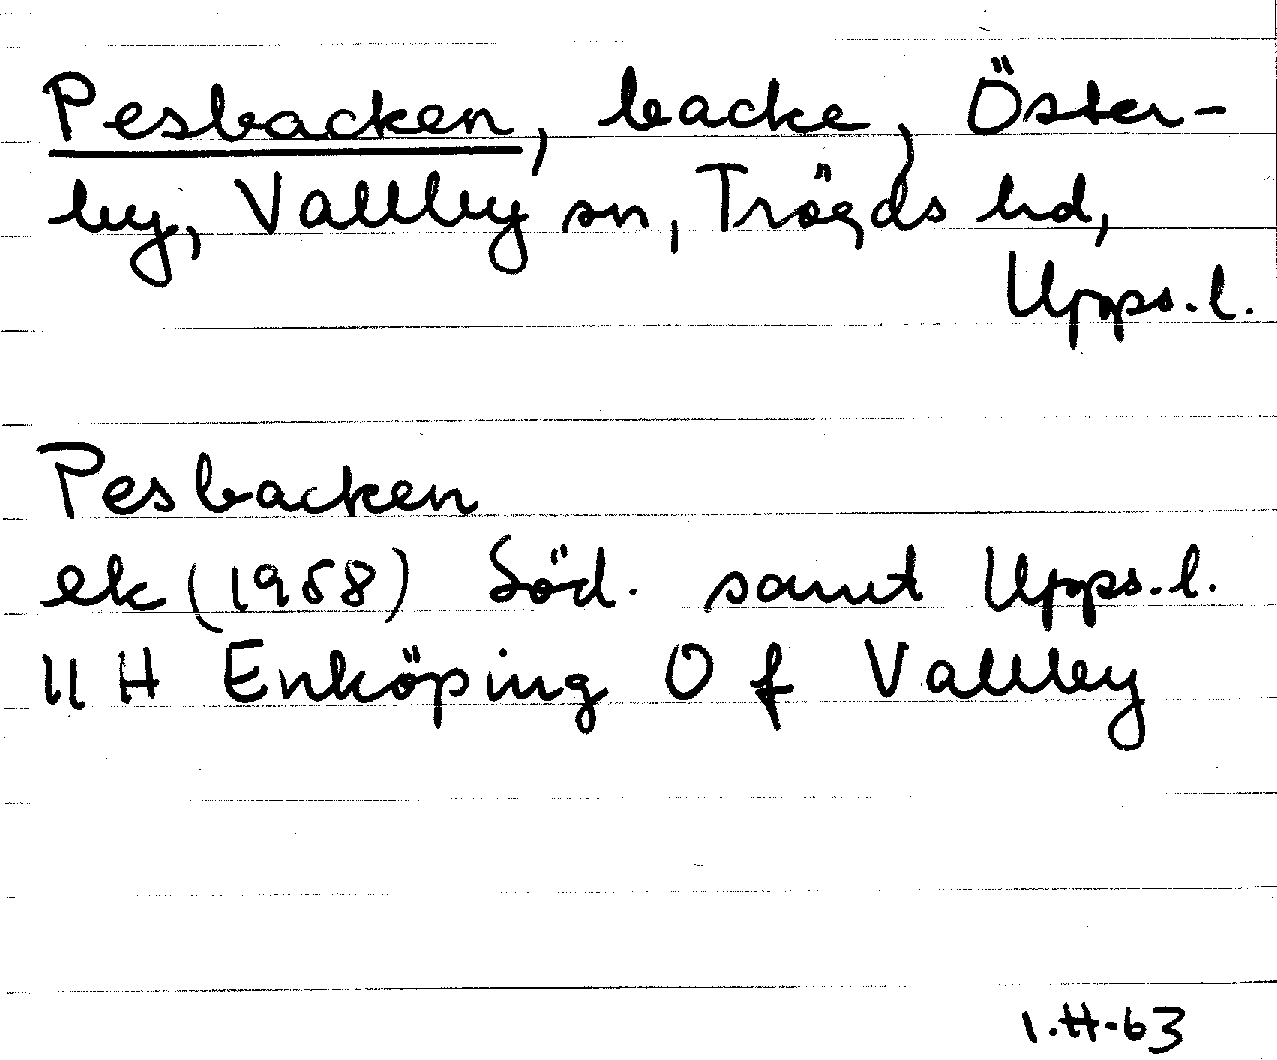 Pesbacken, backe, Öster-
by, Vallby sn, Trögds hd,
Upps.l.
Pesbacken
ek (1958) Söd. samt Upps.l.
11 H Enköping O f Vallby
1.H.63